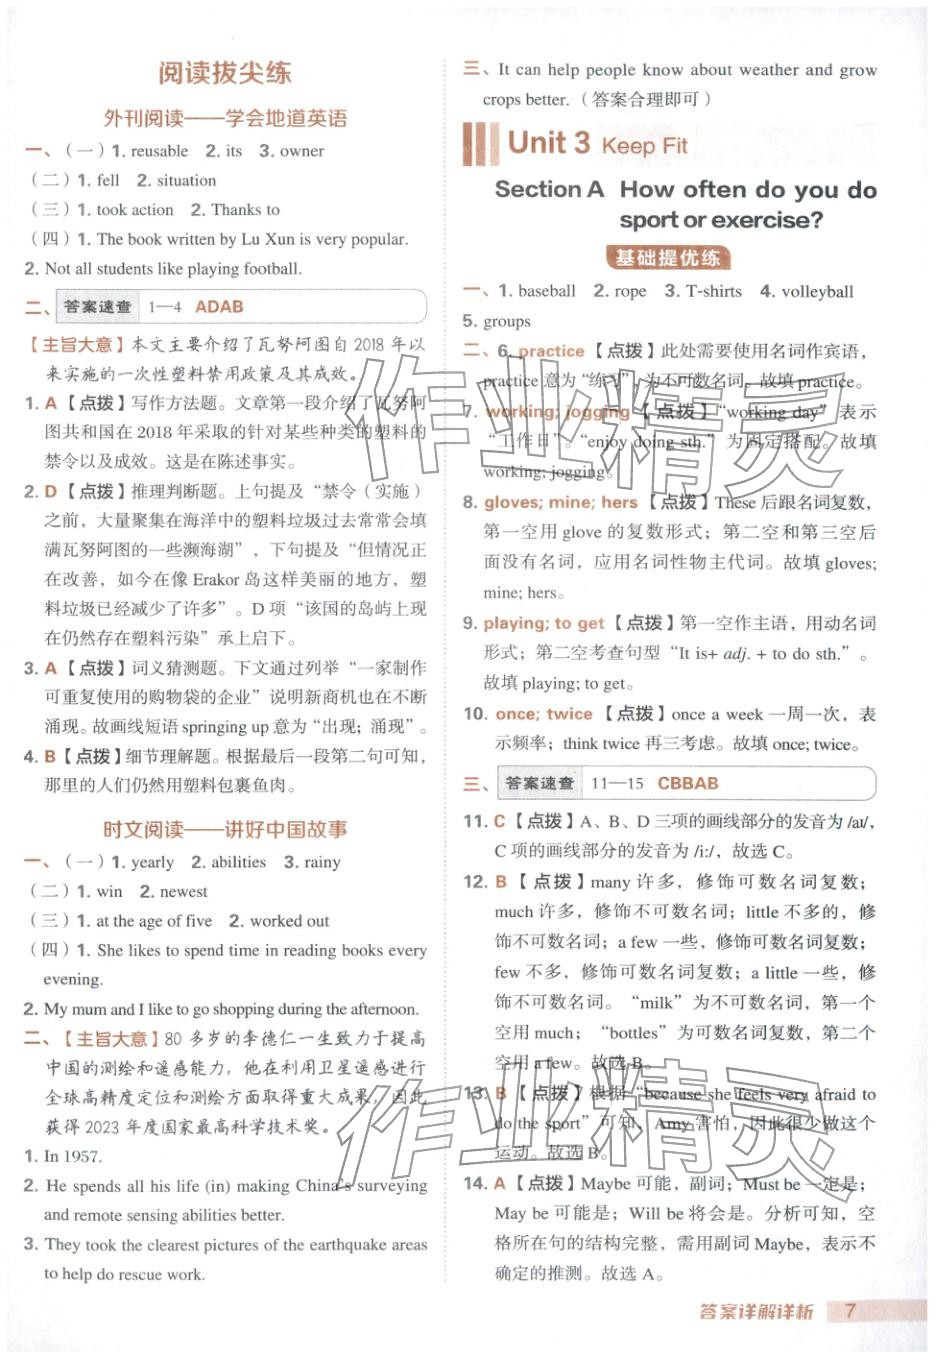 阅读拔尖练
外刊阅读——学会地道英语
一、（一）1. reusable 2. its 3. owner
（二）1. fell 2. situation
（三）1. took action 2. Thanks to
（四）1. The book written by Lu Xun is very popular.
2. Not all students like playing football.
二、答案速查 1—4 ADAB
【主旨大意】本文主要介绍了瓦努阿图自 2018 年以
来实施的一次性塑料禁用政策及其成效。
1. A【点拨】写作方法题。文章第一段介绍了瓦努阿
图共和国在 2018 年采取的针对某些种类的塑料的
禁令以及成效。这是在陈述事实。
2. D【点拨】推理判断题。上句提及“禁令（实施）
之前，大量聚集在海洋中的塑料垃圾过去常常会填
满瓦努阿图的一些濒海湖”，下句提及“但情况正
在改善，如今在像 Erakor 岛这样美丽的地方，塑
料垃圾已经减少了许多”。D 项“该国的岛屿上现
在仍然存在塑料污染”承上启下。
3. A【点拨】词义猜测题。下文通过列举“一家制作
可重复使用的购物袋的企业”说明新商机也在不断
涌现。故画线短语 springing up 意为“出现；涌现”。
4. B【点拨】细节理解题。根据最后一段第二句可知，
那里的人们仍然用塑料包裹鱼肉。
时文阅读——讲好中国故事
一、（一）1. yearly 2. abilities 3. rainy
（二）1. win 2. newest
（三）1. at the age of five 2. worked out
（四）1. She likes to spend time in reading books every
evening.
2. My mum and I like to go shopping during the afternoon.
二、【主旨大意】80 多岁的李德仁一生致力于提高
中国的测绘和遥感能力，他在利用卫星遥感进行
全球高精度定位和测绘方面取得重大成果，因此
获得 2023 年度国家最高科学技术奖。
1. In 1957.
2. He spends all his life (in) making China's surveying
and remote sensing abilities better.
3. They took the clearest pictures of the earthquake areas
to help do rescue work.
三、It can help people know about weather and grow
crops better.（答案合理即可）
Unit 3 Keep Fit
Section A How often do you do
sport or exercise?
基础提优练
一、1. baseball 2. rope 3. T-shirts 4. volleyball
5. groups
二、6. practice【点拨】此处需要使用名词作宾语，
practice 意为“练习”，为不可数名词。故填 practice。
7. working; jogging【点拨】“working day”表示
“工作日”。“enjoy doing sth.”为固定搭配。故填
working; jogging。
8. gloves; mine; hers【点拨】These 后跟名词复数，
第一空用 glove 的复数形式；第二空和第三空后
面没有名词，应用名词性物主代词。故填 gloves;
mine; hers。
9. playing; to get【点拨】第一空作主语，用动名词
形式；第二空考查句型“It is+ adj. + to do sth.”。
故填 playing; to get。
10. once; twice【点拨】once a week 一周一次，表
示频率；think twice 再三考虑。故填 once; twice。
三、答案速查 11—15 CBBAB
11. C【点拨】A、B、D 三项的画线部分的发音为 /aɪ/，
C 项的画线部分的发音为 /iː/，故选 C。
12. B【点拨】many 许多，修饰可数名词复数；
much 许多，修饰不可数名词；little 不多的，修
饰不可数名词；a few 一些，修饰可数名词复数；
few 不多，修饰可数名词复数；a little 一些，修
饰不可数名词。“milk”为不可数名词，第一个
空用 much；“bottles”为可数名词复数，第二个
空用 a few。故选 B。
13. B【点拨】根据“because she feels very afraid to
do the sport”可知，Amy 害怕，因此很少做这个
运动。故选 B。
14. A【点拨】Maybe 可能，副词；Must be 一定是；
May be 可能是；Will be 将会是。分析可知，空
格所在句的结构完整，需用副词 Maybe，表示不
确定的推测。故选 A。
作业精灵
作业精灵
答案详解详析 7